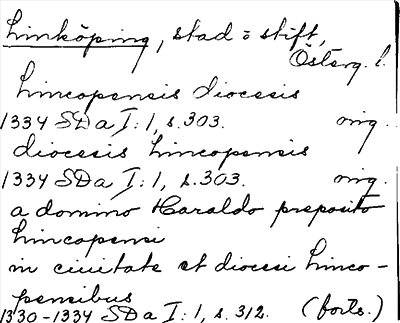 Linköping, stad o stift,
Österg. l.
Lincopensis diocesis
1334 SD a I: 1, s. 303. orig.
diocesis Lincopensis
1334 SD a I: 1, s. 303. orig.
a domino Haraldo preposito
Lincopensi
in ciuitate et diocesi Linco-
pensibus
1330-1334 SD a I: 1, s. 312. (forts.)